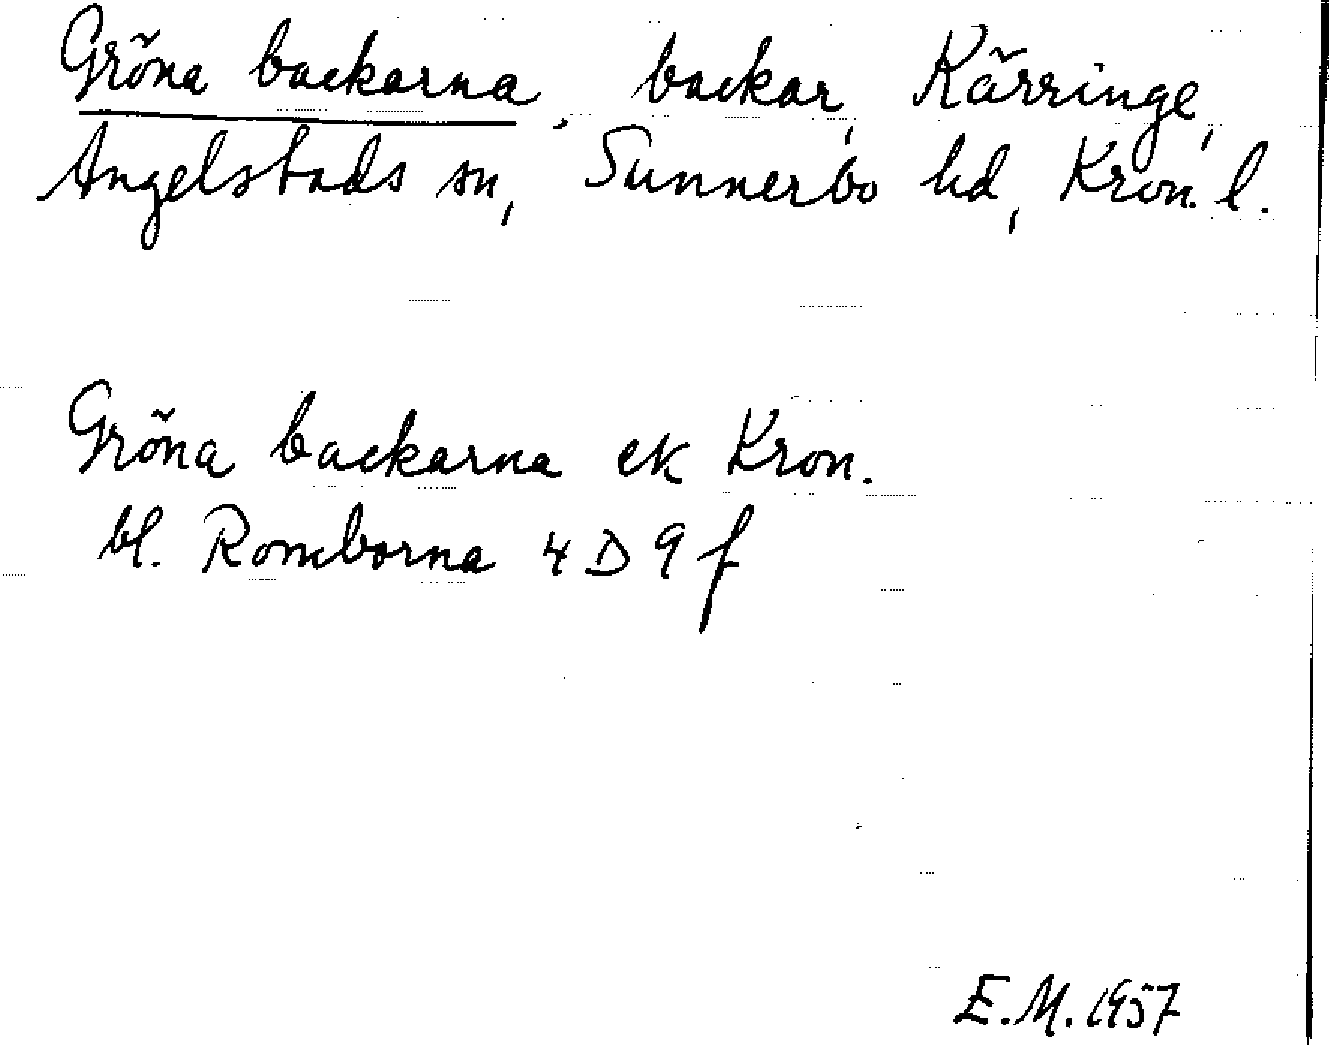 Gröna backarna, backar, Kärringe,
Angelstads sn, Sunnerbo hd, Kron. l.
Gröna backarna ek Kron.
bl. Romborna 4 D 9 f
E.M. 1957